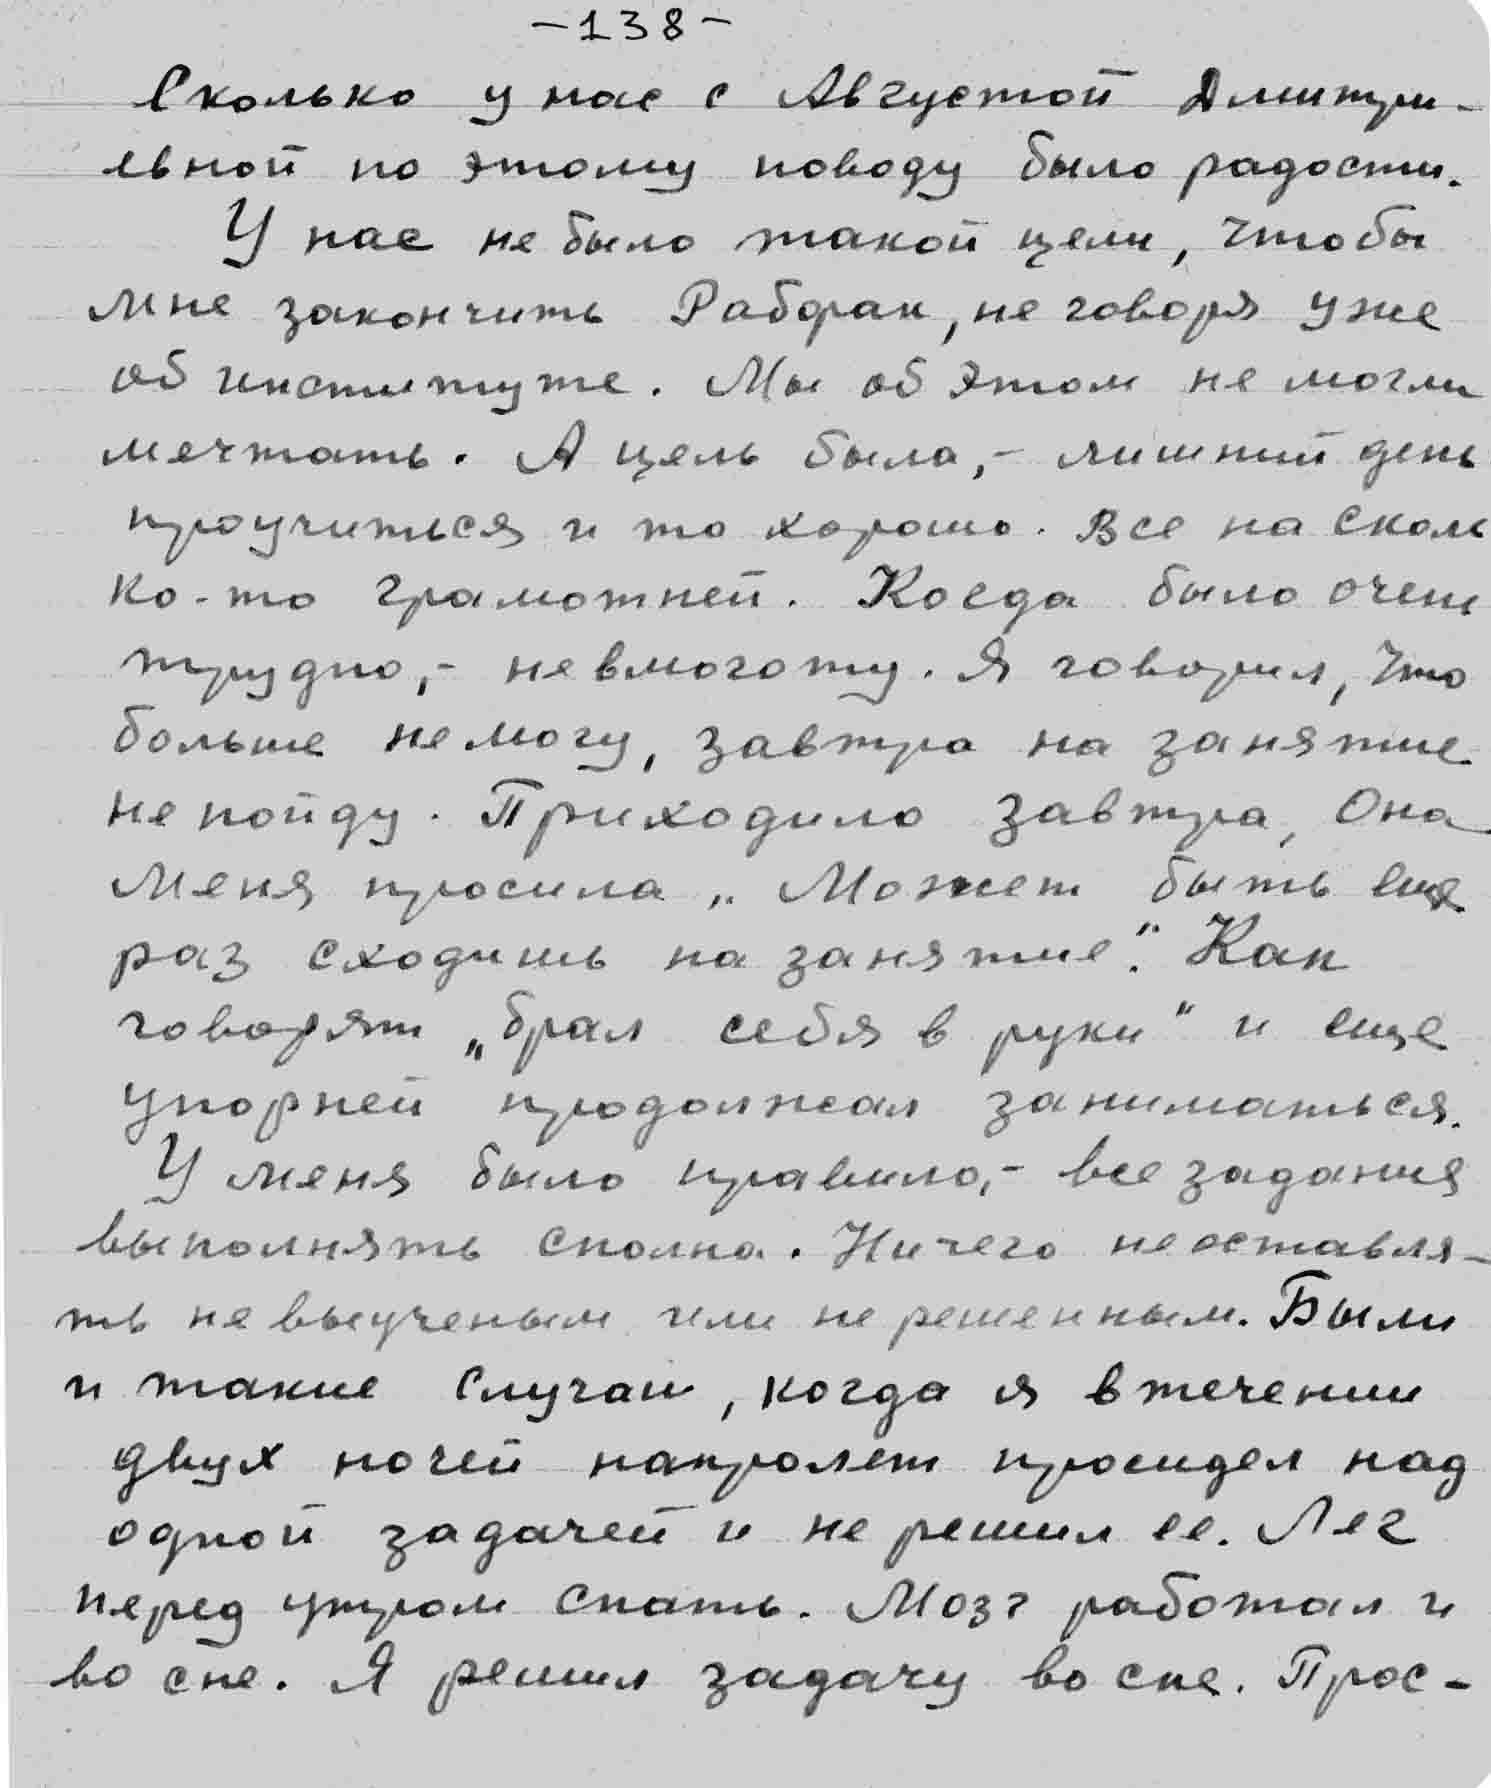 -138-
Сколько у нас с Августой Дмитри-
евной по этому поводу было радости.
У нас не было такой цели, чтобы
мне закончить Рабфак, не говоря уже
об институте. Мы об этом не могли
мечтать. А цель была,- лишний день
проучиться и то хорошо. Все на сколь
ко-то грамотней. Когда было очень
трудно,- невмоготу. Я говорил, что
больше не могу, завтра на занятие
не пойду. Приходило завтра, Она
меня просила „Может быть еще
раз сходишь на занятие". Как
говорят „брал себя в руки" и еще
упорней продолжал заниматься.
У меня было правило,- все задания
выполнять сполна. Ничего не оставля-
ть не выученым или не решенным. Были
и такие случаи, когда я в течении
двух ночей напролет просидел над
одной задачей и не решил ее. Лег
перед утром спать. Мозг работал и
во сне. Я решил задачу во сне. Прос-